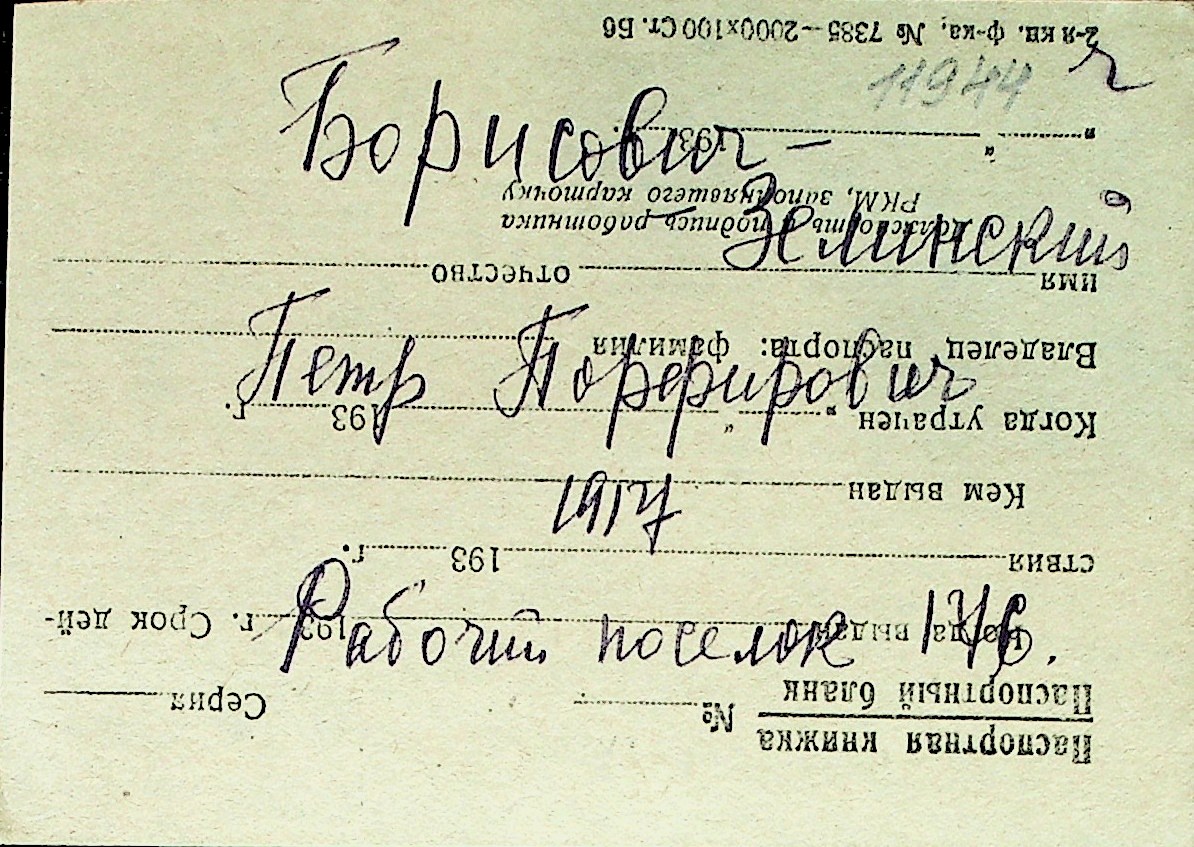 11944
Борисович –
– Зелинский
Петр Порфирович
1917
Рабочий поселок 17/6.
Паспортная книжка
Паспортный бланк № Серия
Когда выдан 193 г. Срок дей-
ствия 193 г.
Кем выдан
Когда утрачен „ “ 193 г.
Владелец паспорта: фамилия
имя отчество
Должность и подпись работника
РКМ, заполнявшего карточку
„ “ 193 г.
2-я кн. ф-ка, № 7385—2000х100 Ст. Бб